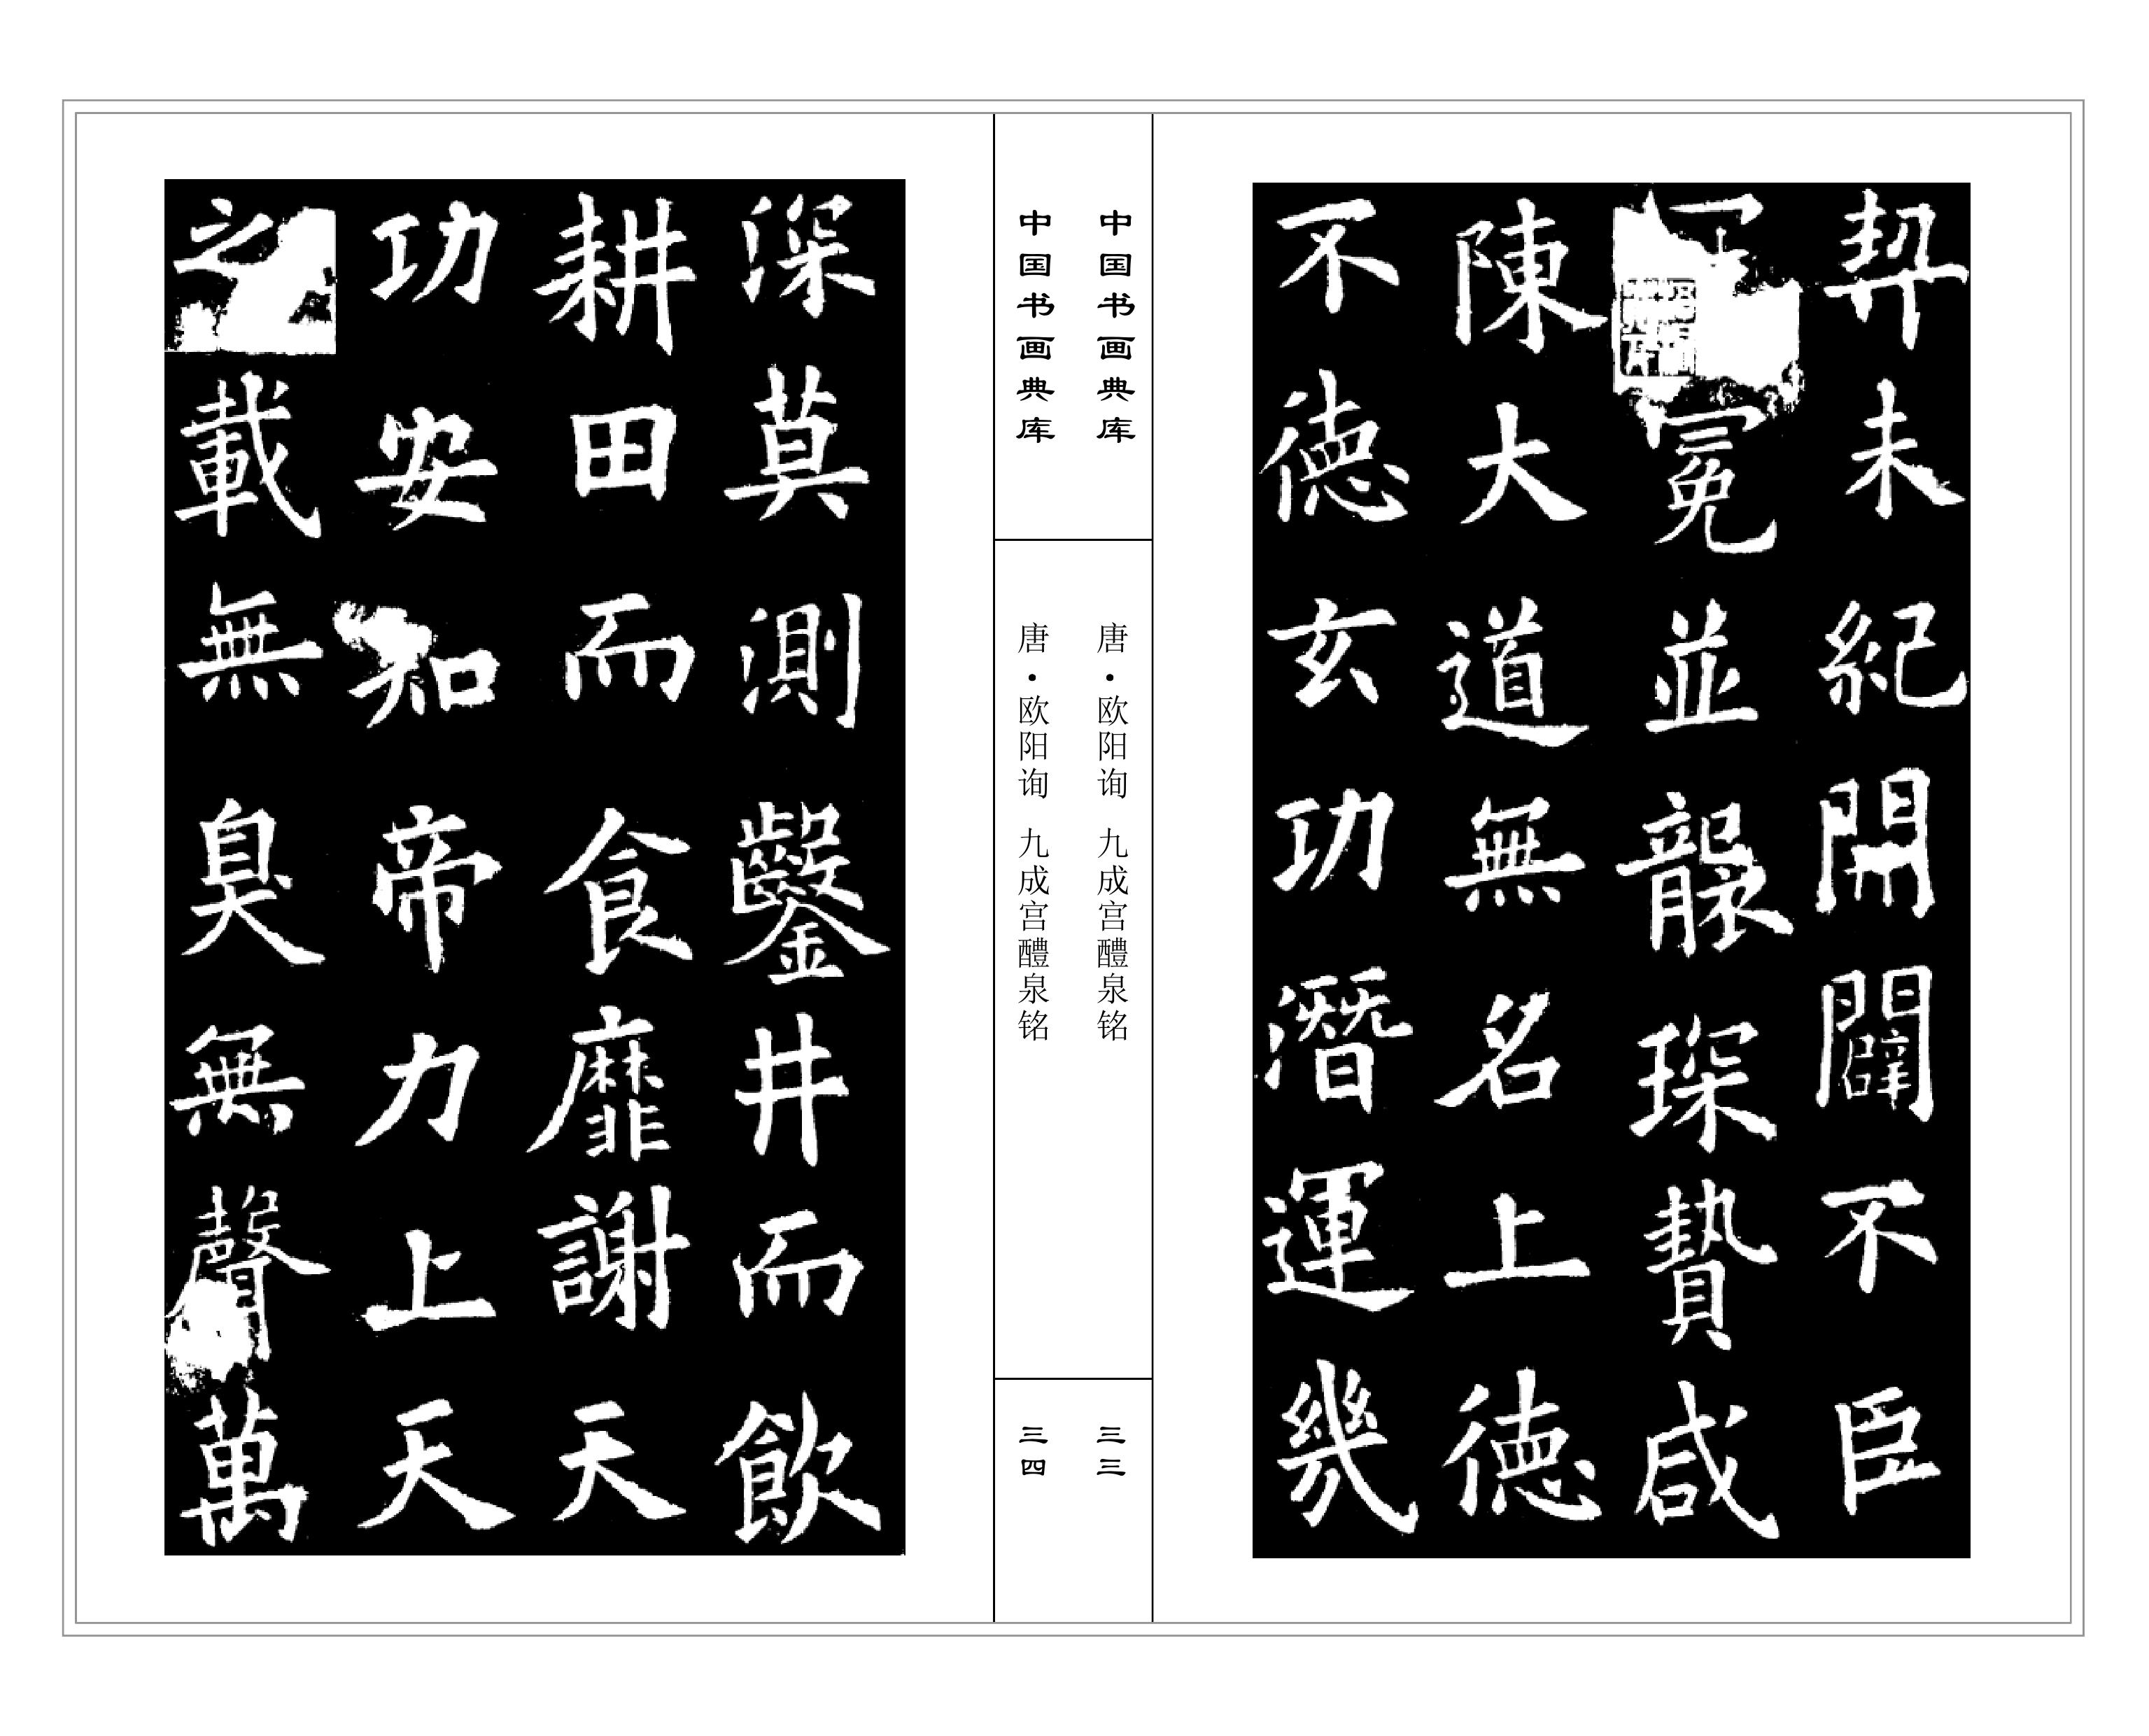 契未紀開闢不臣
冕並襲琛贄咸
陳大道無名上德
不德玄功潛運幾
中国书画典库
唐·欧阳询 九成宫醴泉铭
三三
中国书画典库
唐·欧阳询 九成宫醴泉铭
三四
深莫測鑿井而飲
耕田而食靡謝天
功安知帝力上天
之載無臭無聲萬